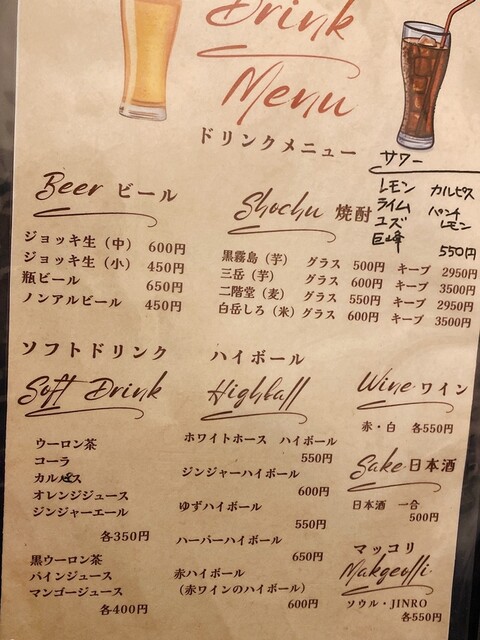 Drink
Menu
ドリンクメニュー
サワー
レモン カルピス
ライム パンチレモン
ユズ
巨峰
550円
Beer ビール
ジョッキ生（中） 600円
ジョッキ生（小） 450円
瓶ビール 650円
ノンアルビール 450円
Shochu 焼酎
黒霧島（芋） グラス 500円 キープ 2950円
三岳（芋） グラス 600円 キープ 3500円
二階堂（麦） グラス 550円 キープ 2950円
白岳しろ（米） グラス 600円 キープ 3500円
ソフトドリンク
Soft Drink
ウーロン茶
コーラ
カルピス
オレンジジュース
ジンジャーエール
各350円
黒ウーロン茶
パインジュース
マンゴージュース
各400円
ハイボール
Highball
ホワイトホース ハイボール
550円
ジンジャーハイボール
600円
ゆずハイボール
550円
ハーパーハイボール
650円
赤ハイボール
（赤ワインのハイボール）
600円
Wine ワイン
赤・白 各550円
Sake 日本酒
日本酒 一合
500円
マッコリ
Makgeolli
ソウル・JINRO
各550円